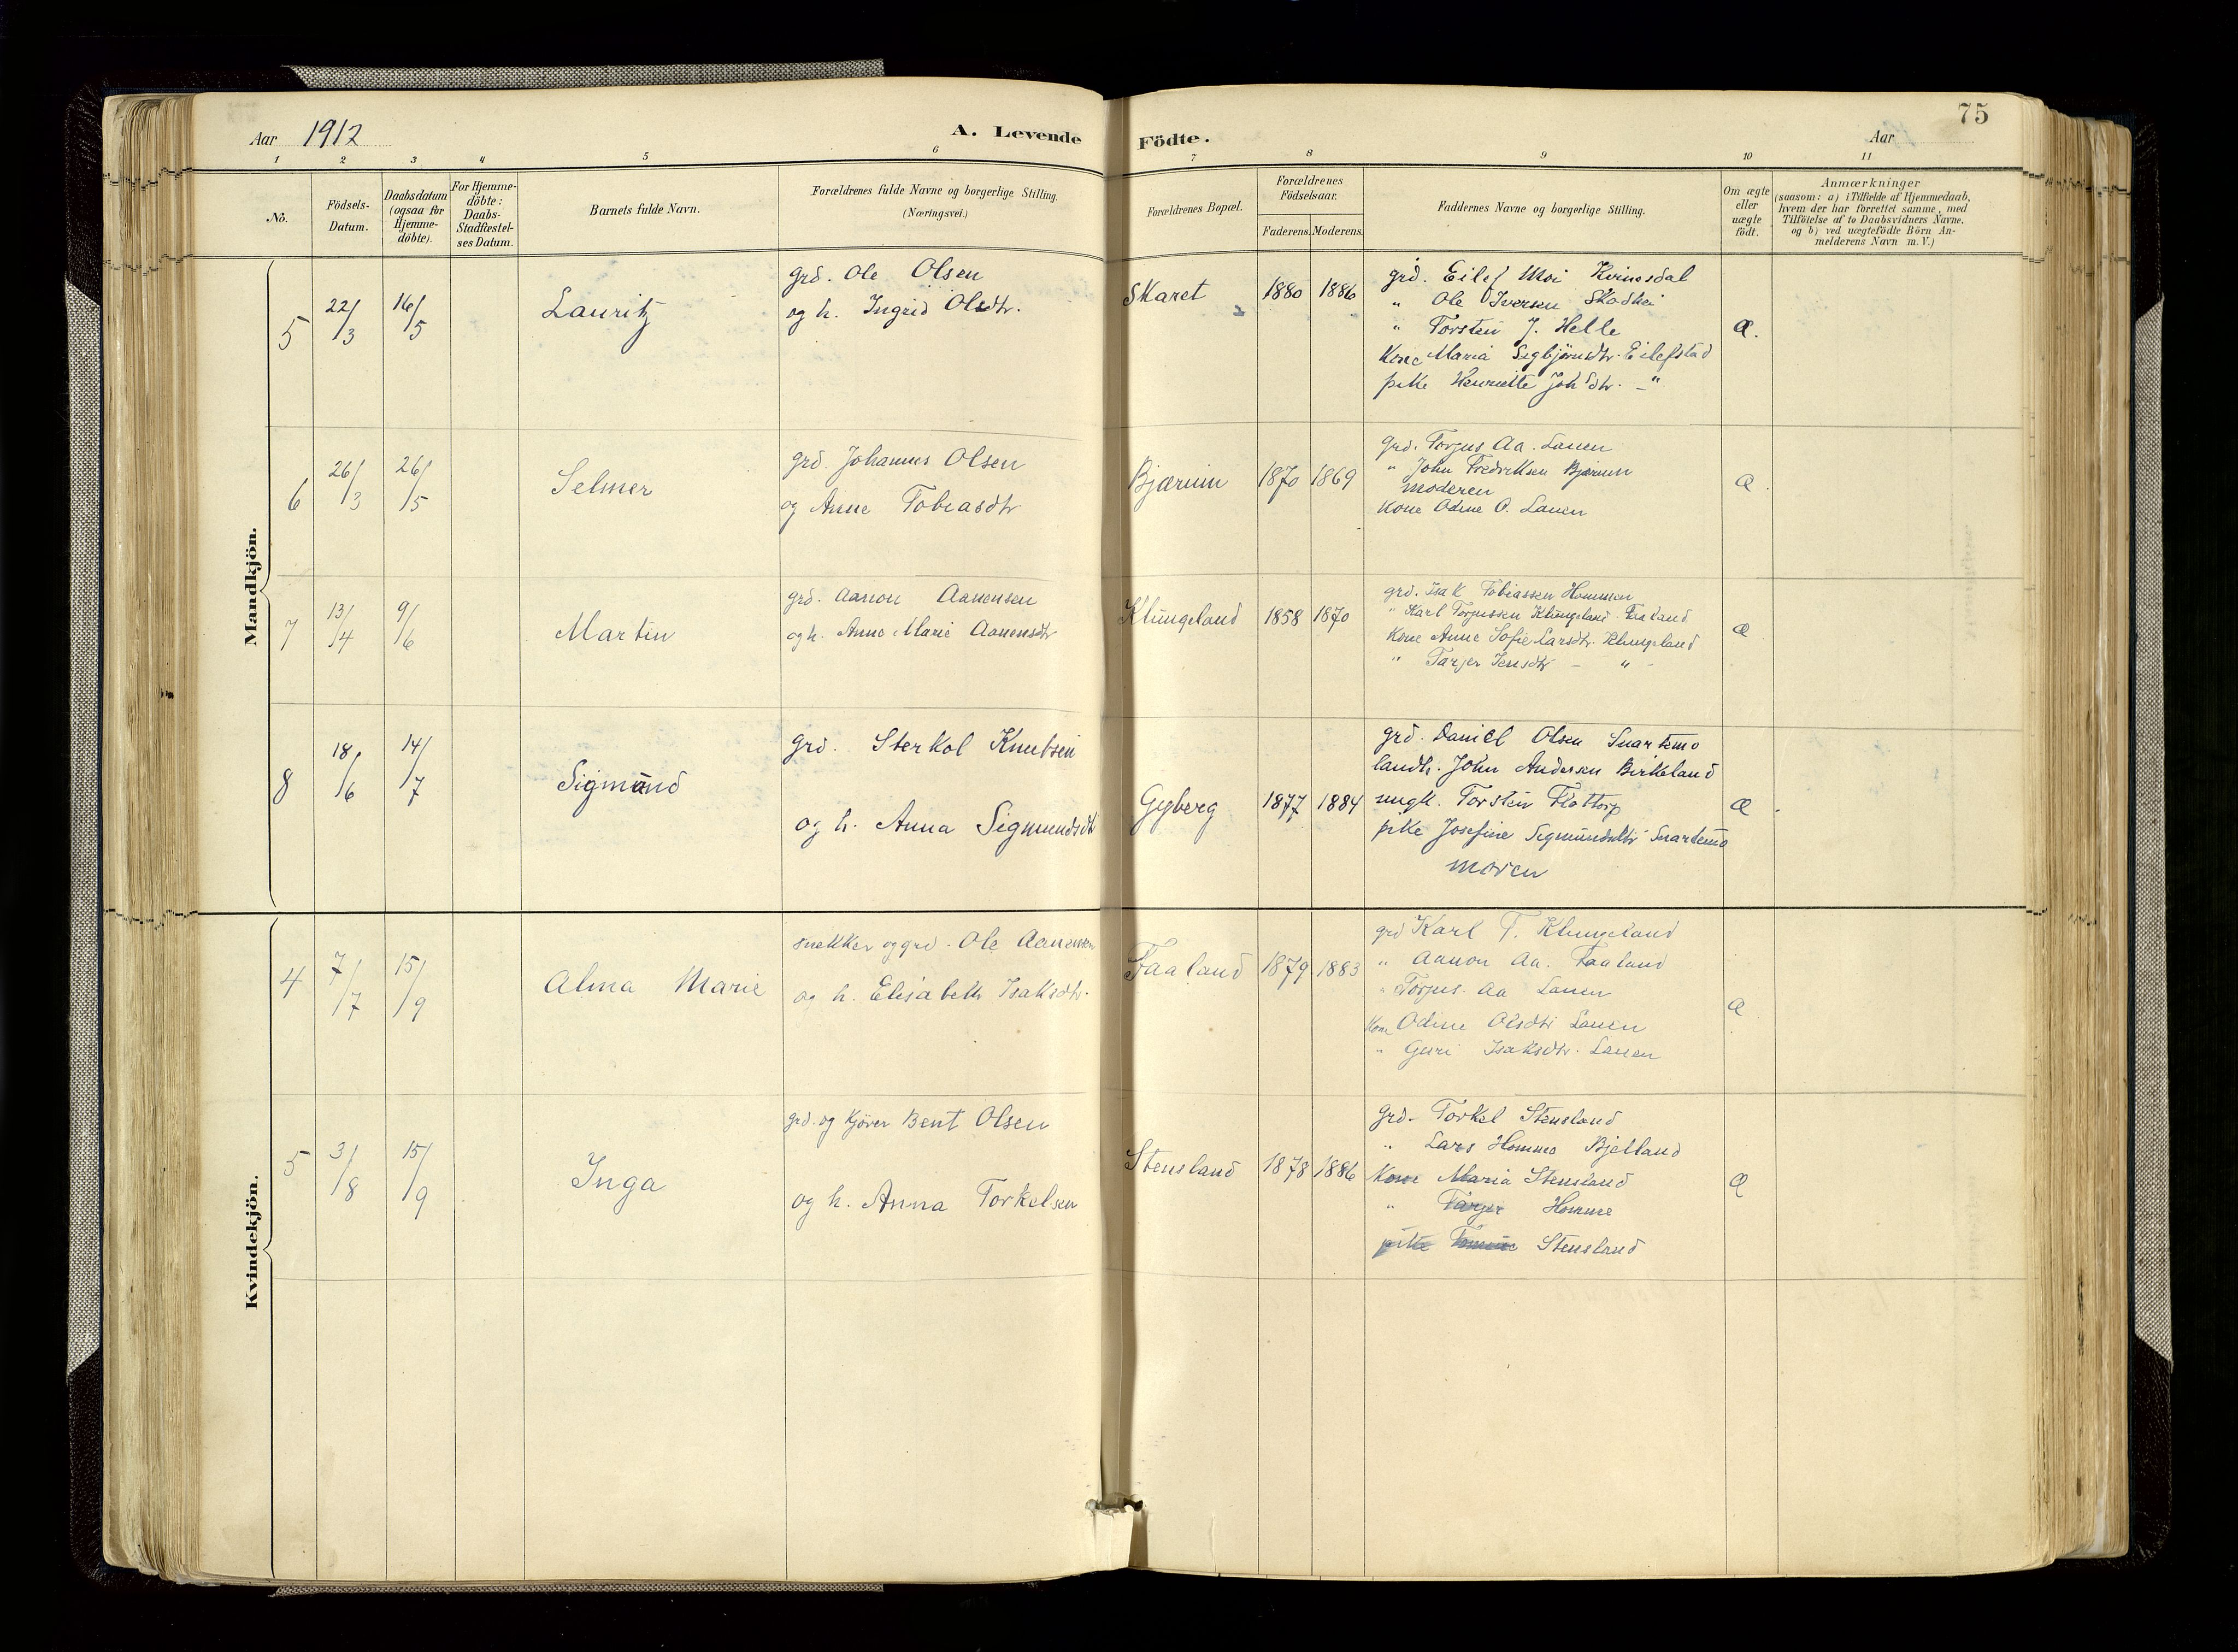 75
Aar 1912
A. Levende Födte.
Aar
1 2 3 4 5 6 7 8 9 10 11
No.
Födsels-Datum.
Daabsdatum (ogsaa for Hjemme-döbte).
For Hjemme-döbte: Daabs-Stadfæstel-ses Datum.
Barnets fulde Navn.
Forældrenes fulde Navne og borgerlige Stilling.
(Næringsvei.)
Forældrenes Bopæl.
Forældrenes Födselsaar.
Faderens. Moderens.
Faddernes Navne og borgerlige Stilling.
Om ægte eller uægte födt.
Anmærkninger
(saasom: a) i Tilfælde af Hjemmedaab, hvem der har forrettet samme, med Tilföielse af to Daabsvidners Navne, og b) ved uægtefödte Börn An-melderens Navn m. V.)
Mandkjön.
5 22/3 16/5 Lauritz
grd. Ole Olsen
og h. Ingrid Olsdtr.
Skaret 1880 1886
grd. Eilef Moi Kvinesdal
" Ole Iversen Skadhei
" Torstein J. Helle
Kone Maria Segbjørnsdtr. Eilefstad
pike Henriette Johsdtr. - "
Æ.
6 26/3 26/5 Selmer
grd. Johannes Olsen
og Anne Tobiasdtr
Bjærum 1870 1869
grd. Torjus Aa. Lauen
" John Fredriksen Bjærum
moderen
Kone Odine O. Lauen
Æ.
7 13/4 9/6 Martin
grd. Aanon Aanensen
og h. Anne Marie Aanensdtr
Klungeland 1858 1870
grd. Isak Tobiassen Hommen
" Karl Torjussen Klungeland Faaland
Kone Anne Sofie Larsdtr. Klungeland
" Tarjer Jensdtr - " -
Æ
8 18/6 14/7 Sigmund
grd. Sterkol Knutsen
og h. Anna Sigmundsdtr
Gyberg 1877 1884
grd. Daniel Olsen Snartemo
landh. John Andersen Birkeland
ungk. Torstein Flottorp
pike Josefine Sigmundsdtr Snartemo
moren
Æ.
Kvindekjön.
4 7/7 15/9 Alma Marie
snekker og grd. Ole Aanensen
og h. Elisabeth Isaksdtr.
Faaland 1879 1883
grd Karl T. Klungeland
" Aanon Aa. Faaland
" Torjus Aa Lauen
Kone Odine Olsdtr Lauen
" Guri Isaksdtr. Lauen
Æ
5 3/8 15/9 Inga
grd. og Kjører Bent Olsen
og h. Anna Torkelsen
Stensland 1878 1886
grd. Torkel Stensland
" Lars Homme Bjelland
Kone Maria Stensland
" Tarjer Homme
pike Stensland
Æ